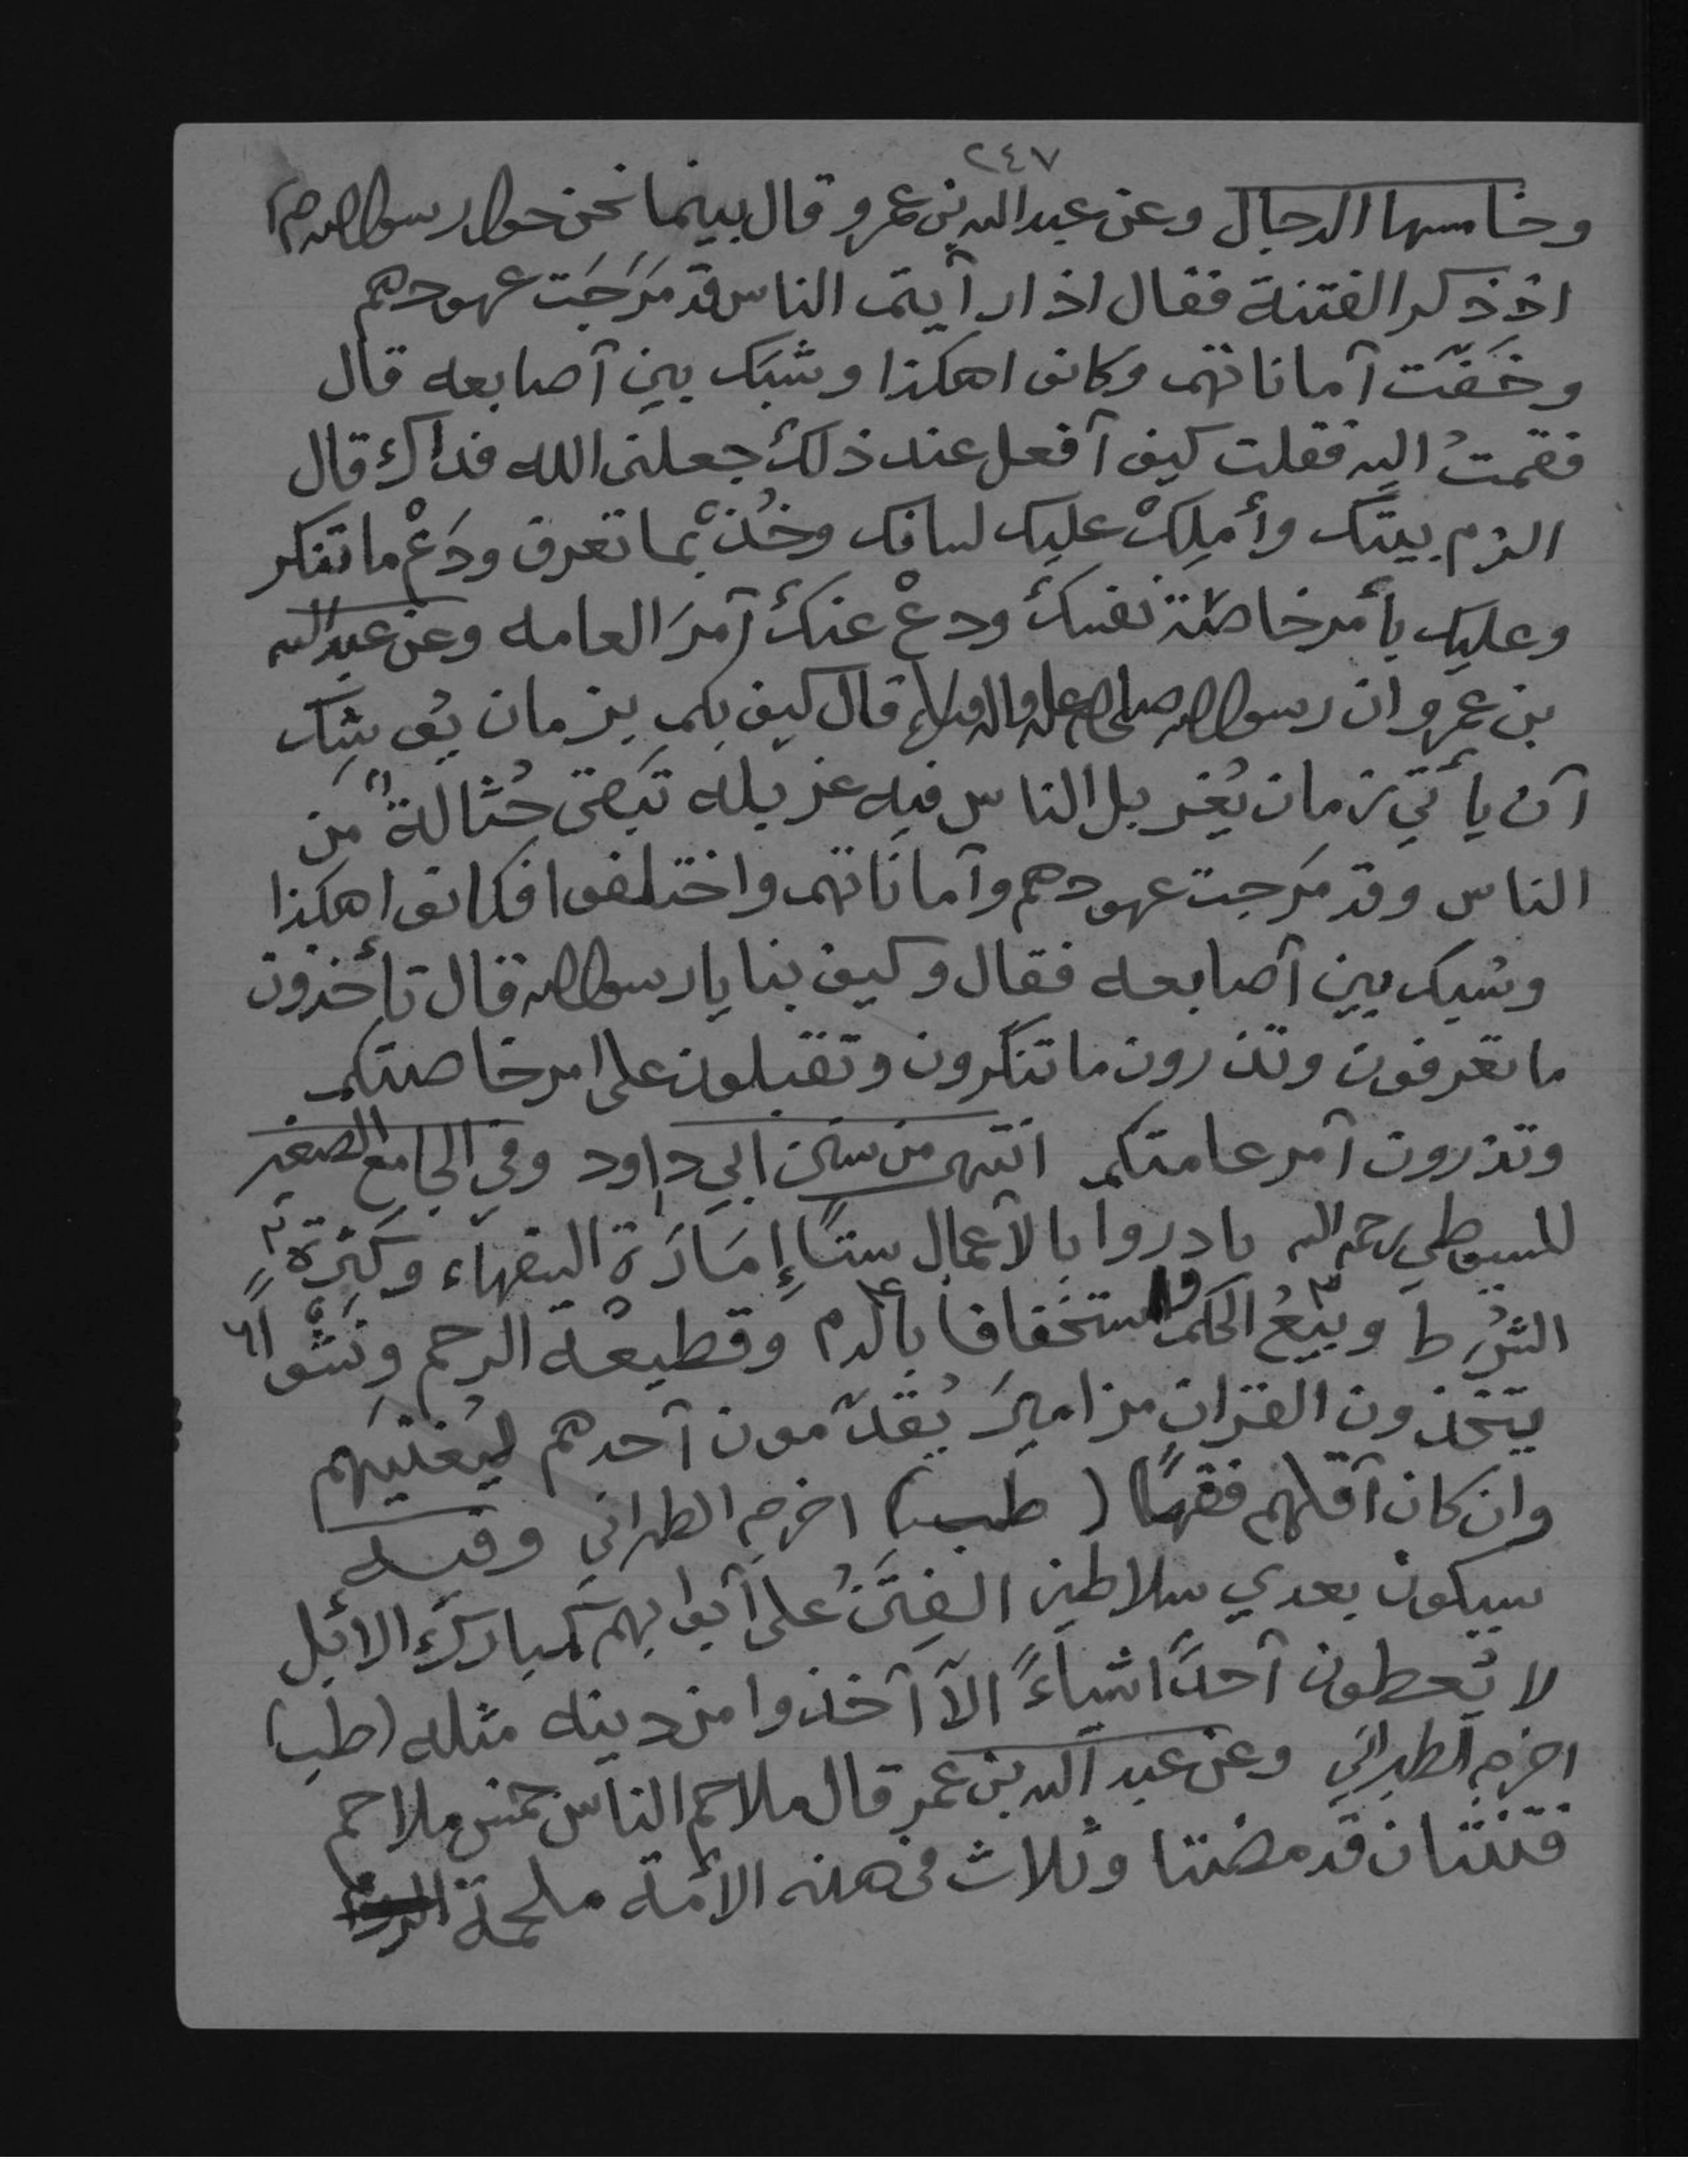 ٢٤٧
وخامسها الدجال وعن عبدالله بن عمرو قال بينما نحن حول رسول الله صم
اذ ذكر الفتنة فقال اذا رأيتم الناس قد مَرَجَت عهودهم
وخَفّت أماناتهم وكانوا هكذا وشبك بين أصابعه قال
فقمتُ اليه فقلت كيف أفعل عند ذلك جعلني الله فداك قال
الزم بيتك وأملِكْ عليك لسانك وخُذْ بما تعرف ودَعْ ما تنكر
وعليك بأمر خاصة نفسك ودعْ عنك أمرَ العامه وعن عبدالله
بن عمرو ان رسول الله صلى الله عليه واله وسلم قال كيف بكم بزمان يُوشِك
أن يأتي زمان يُغربل الناس فيه غربله تَبقى حُثالةٌ من
الناس وقد مَرجت عهودهم وأماناتهم واختلفوا فكانوا هكذا
وشبك بين أصابعه فقال وكيف بنا يا رسول الله قال تأخذون
ما تعرفون وتذرون ما تنكرون وتقبلون على امر خاصتكم
وتذرون أمر عامتكم انتهى من سنن ابي داود وفي الجامع الصغير
للسيوطي رحمه الله بادروا بالأعمال ستًا إمَارَة السفهاء وكَثرة ٢
الشُرط وبَيْعُ ٣ الحكم واستخفافا ٤ بالدم وقطيعْة الرحم ونَشْواً ٦
يتخذون القران مزاميرَ يُقدّمون أحدهم ليُغنيَهم
وان كان أقلهم فقهًا (طب) اخرجه الطبراني وفيه
سيكون بعدي سلاطين الفِتَنُ على أبوابهم كمبارك الابل
لا يُعطون أحدًا شياءً الا أخذوا من دينه مثله (طب)
اخرجه الطبراني وعن عبد الله بن عمر قال ملاحم الناس خمس ملاحم
فتنتان قد مضتا وثلاث في هذه الأمة ملحمة